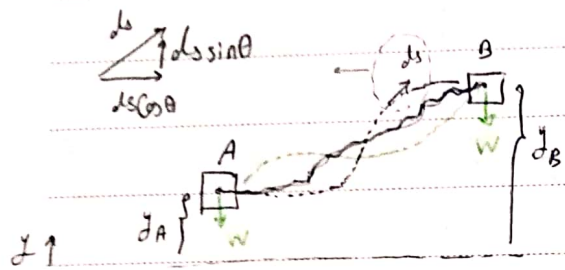 ds
ds sinθ
ds cosθ
ds
B
W
y_B
A
y_A
W
y